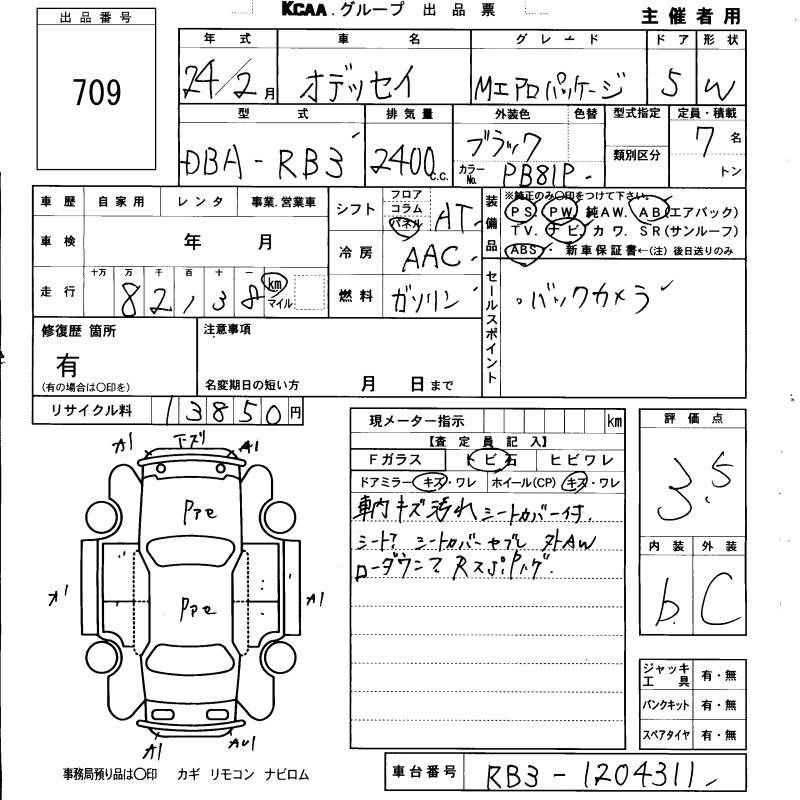 KCAA.グループ 出品票
主催者用
出品番号
709
年式 車名 グレード ドア 形状
24/2月 オデッセイ Mエアロパッケージ 5 W
型式 排気量 外装色 色替 型式指定 定員・積載
DBA-RB3 2400c.c. ブラック 類別区分 7名
カラーNo. PB81P トン
車歴 自家用 レンタ 事業.営業車
シフト フロア コラム パネル AT
装備品 ※純正のみ〇印をつけて下さい。
PS. PW. 純AW. AB(エアバック)
TV. ナビ. カワ. SR(サンルーフ)
ABS・ 新車保証書←(注)後日送りのみ
車検 年 月
冷房 AAC
走行 十万 万 千 百 十 一
82,138 km マイル
燃料 ガソリン
セールスポイント
・バックカメラ
修復歴 箇所
有
(有の場合は〇印を)
注意事項
名変期日の短い方 月 日まで
リサイクル料 13850円
現メーター指示 km
【査定員記入】
Fガラス トビ石 ヒビワレ
ドアミラー キズ・ワレ ホイール(CP) キズ・ワレ
車内キズ汚れ シートカバー付.
シート? シートカバー ヤブレ 外AW
ローダウン?
評価点
3.5
内装 外装
b C
ジャッキ工具 有・無
パンクキット 有・無
スペアタイヤ 有・無
A1 下ズリ A1
A1 A1
A1
事務局預り品は〇印 カギ リモコン ナビロム
車台番号 RB3-1204311